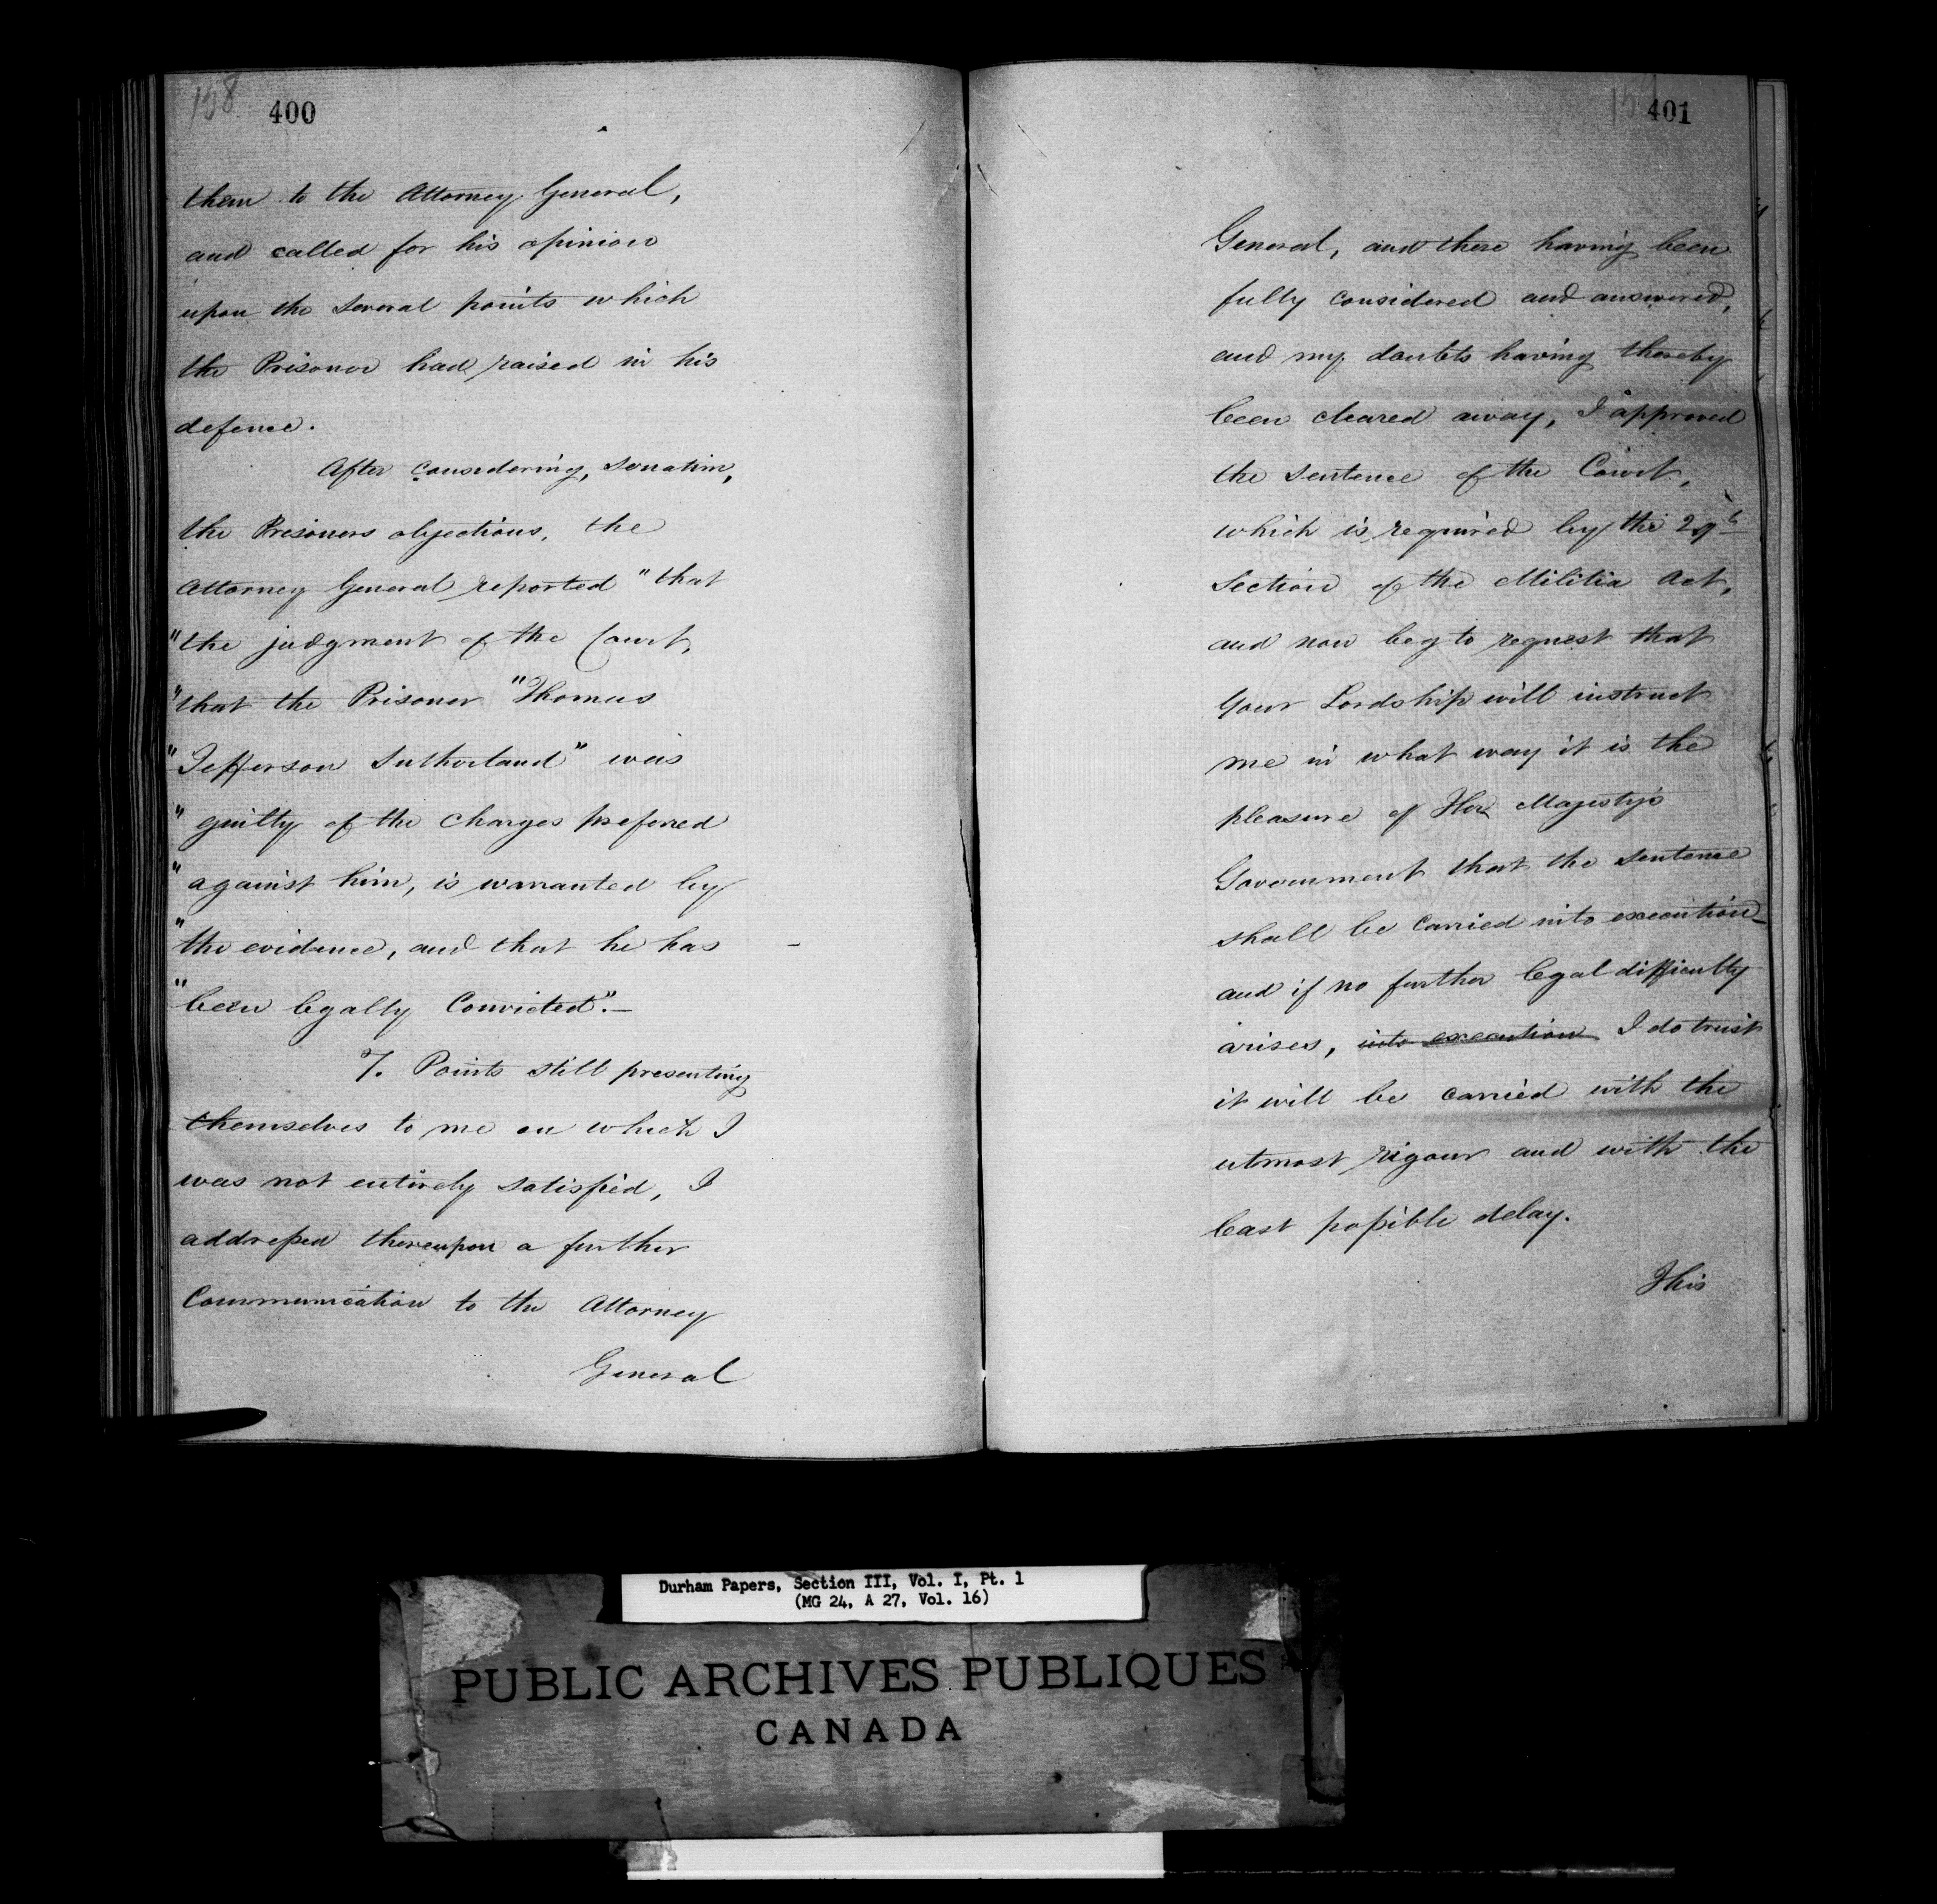 158 400
them to the Attorney General,
and called for his opinion
upon the several points which
the Prisoner had raised in his
defence.
After considering, seriatim,
the Prisoners objections, the
Attorney General reported "that
"the judgment of the Court,
"that the Prisoner "Thomas
"Jefferson Sutherland" was
"guilty of the charges preferred
"against him, is warranted by
"the evidence, and that he has
"been legally Convicted".—
7. Points still presenting
themselves to me on which I
was not entirely satisfied, I
addressed thereupon a further
Communication to the Attorney
General
401
General, and these having been
fully considered and answered,
and my doubts having thereby
been cleared away, I approved
the sentence of the Court,
which is required by the 29th
Section of the Militia Act,
and now beg to request that
Your Lordship will instruct
me in what way it is the
pleasure of Her Majesty's
Government that the sentence
shall be carried into execution_
and if no further legal difficulty
arises, into execution I do trust
it will be carried with the
utmost rigour and with the
least possible delay.
This
Durham Papers, Section III, Vol. I, Pt. 1
(MG 24, A 27, Vol. 16)
PUBLIC ARCHIVES PUBLIQUES
CANADA